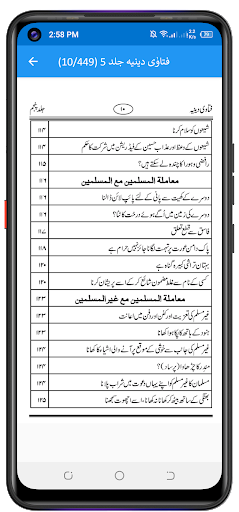 2:58 PM
فتاوٰی دینیہ جلد 5 (10/449)
فتاویٰ دینیہ ۱۰ جلد پنجم
شیعوں کو سلام کرنا ۱۱۴
شیعوں کے وعظ اور عذاب حسین کے فیڈریشن میں شرکت کا حکم ۱۱۴
رافضی و بوہرا کا چندہ لے سکتے ہیں؟ ۱۱۵
معاملة المسلمين مع المسلمين ۱۱۶
دوسرے کے کھیت سے پانی کے لئے پائپ لائن ڈالنا ۱۱۶
دوسرے کی زمین میں اُگے ہوئے درخت کا کاٹنا؟ ۱۱۶
فاسق سے قطع تعلق ۱۱۷
پاک دامن عورت پر تہمت لگانا جائز نہیں حرام ہے ۱۱۹
بہتان تراشی کبیرہ گناہ ہے ۱۲۰
کسی کے نام سے غلط مضمون شائع کر کے اسے پریشان کرنا ۱۲۰
معاملة المسلمين مع غير المسلمين ۱۲۳
غیر مسلم کی تعزیت اور کفن اور دفن میں اعانت ۱۲۳
ہنود کے ہاتھ کا پکا ہوا کھانا ۱۲۳
غیر مسلم کی جانب سے خوشی کے موقع پر آنے والی اشیاء کا کھانا ۱۲۴
مندر کا چڑھاوا (پرساد) کھانا؟ ۱۲۴
مسلمان کا غیر مسلم کو اپنے یہاں دعوت میں شراب پلانا ۱۲۴
بھنگی کے ساتھ بیٹھ کر کھانا نہ کھانا، اسے اچھوت سمجھنا ۱۲۵